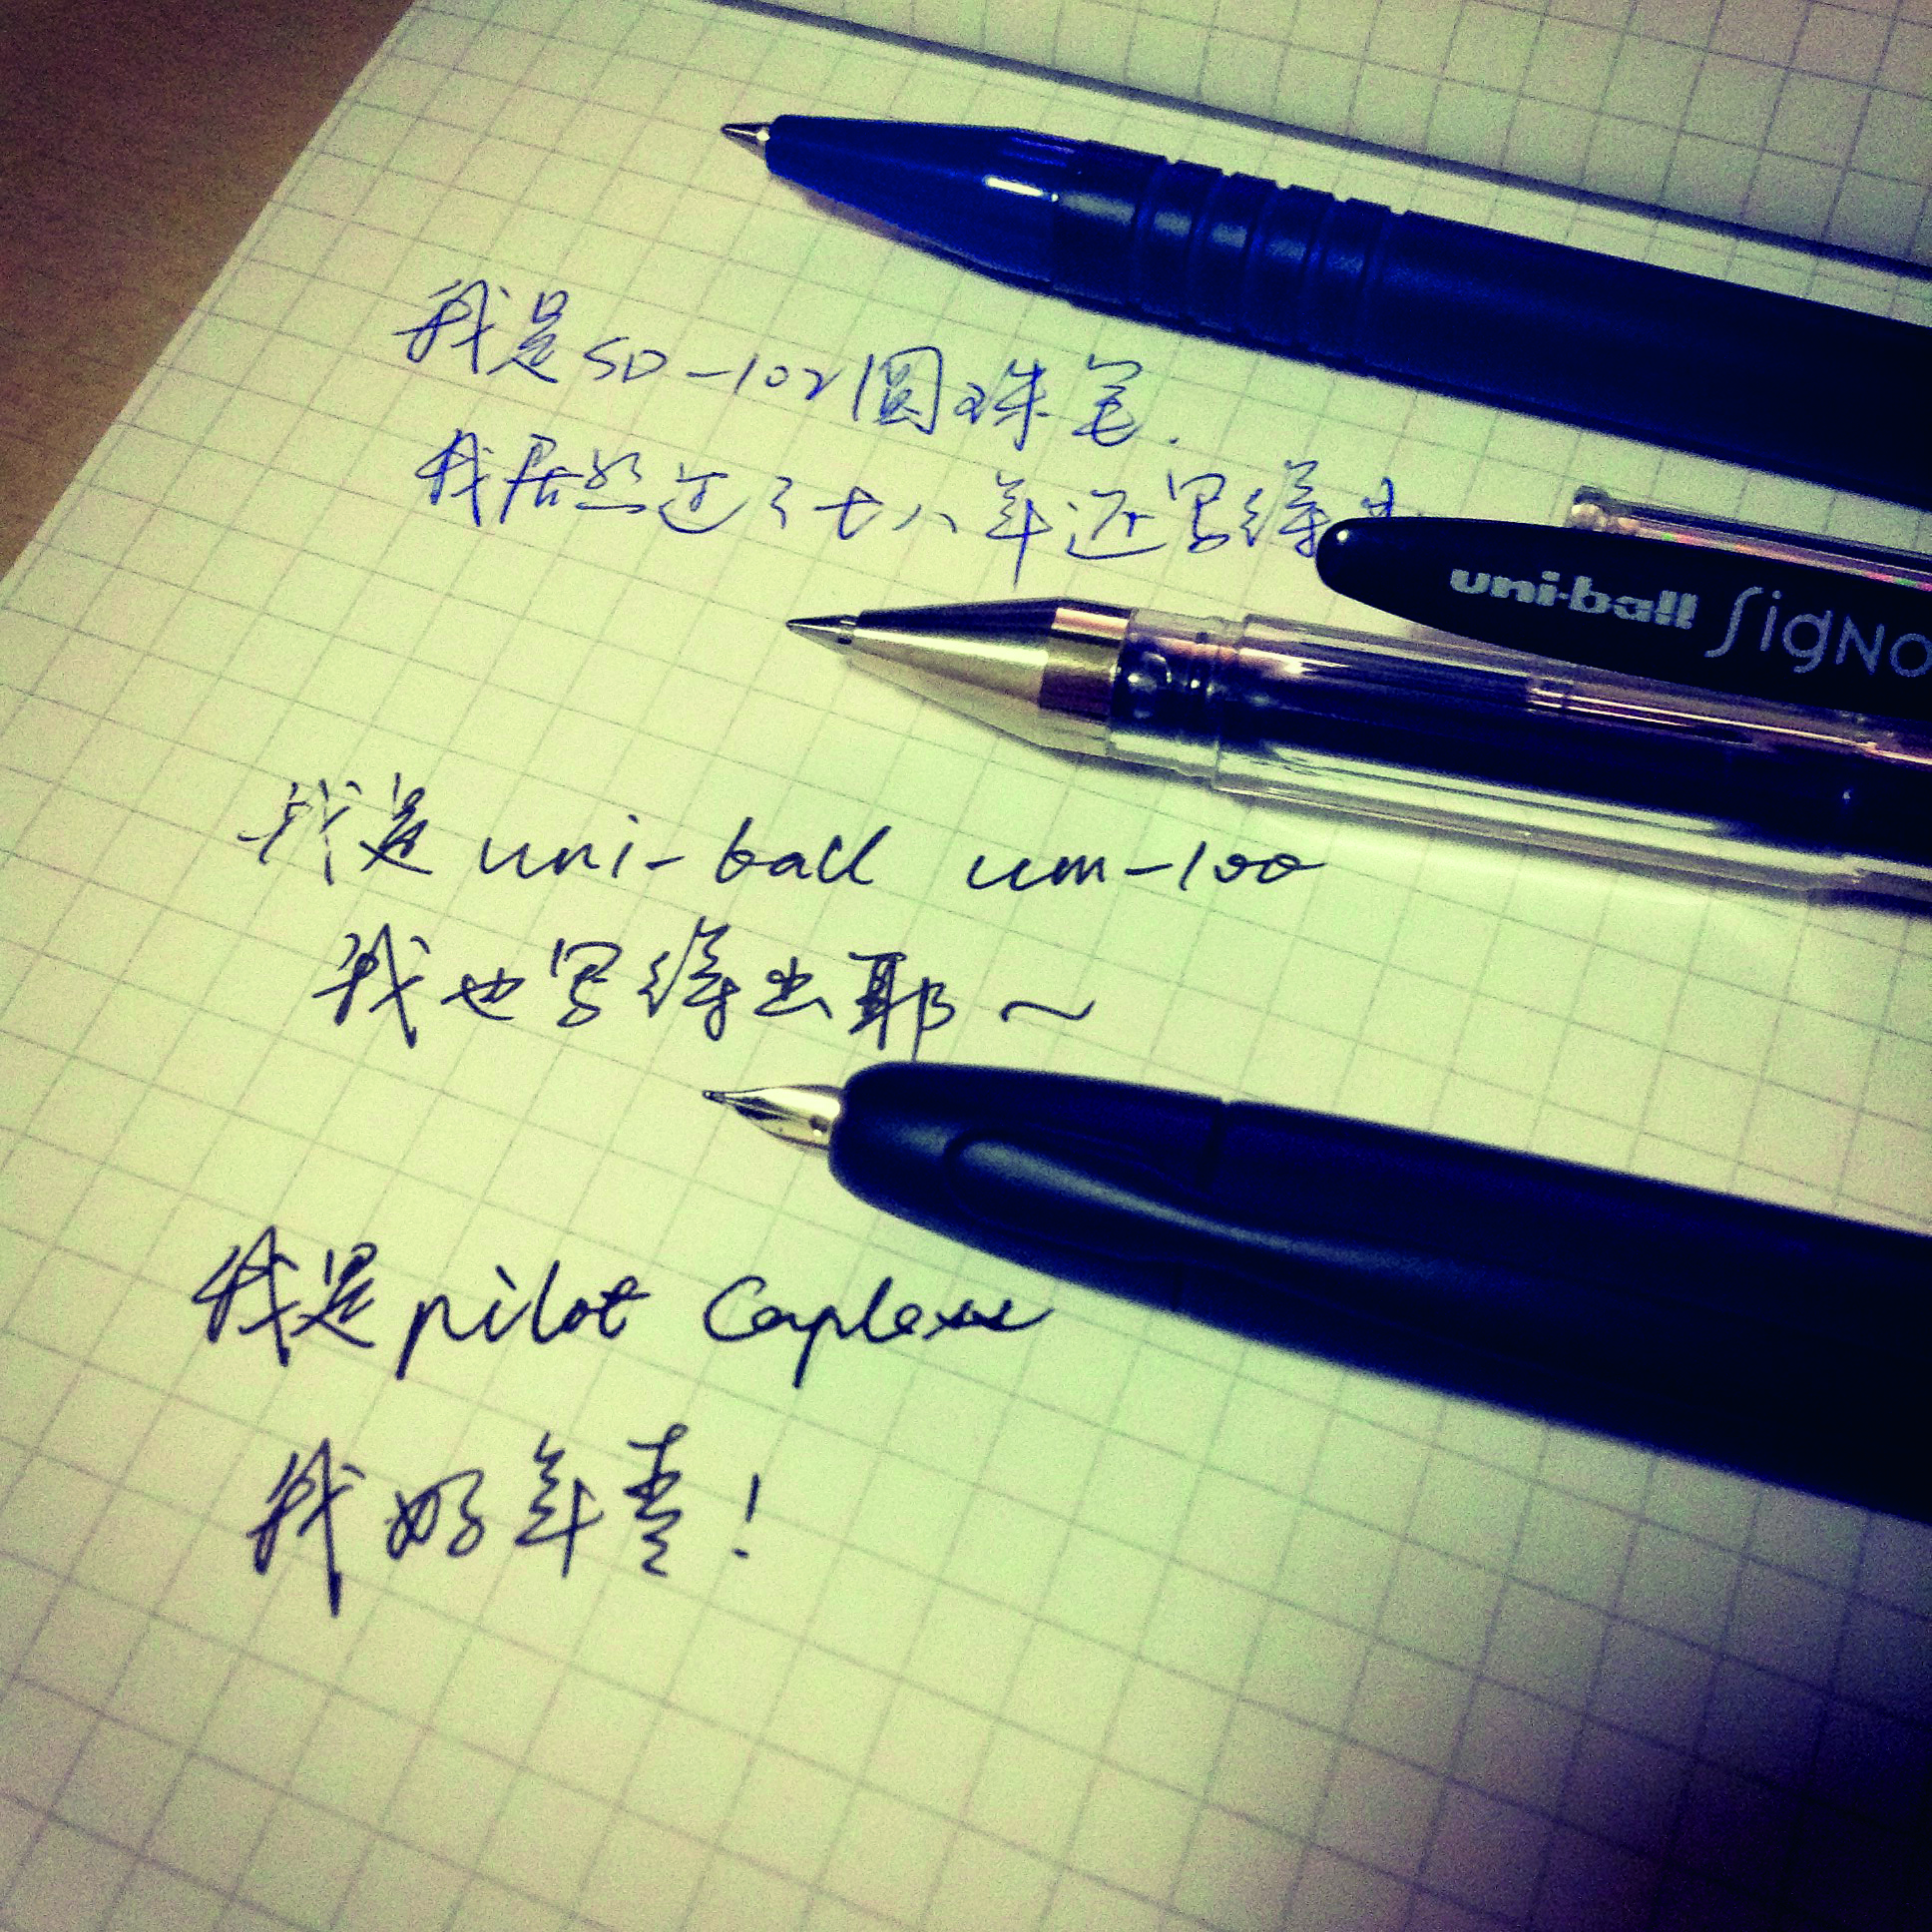 我是SD-102圆珠笔.
我居然过了七八年还写得出
uni-ball SigNo
我是 uni-ball um-100
我也写得出耶～
我是pilot Capless
我好年青!